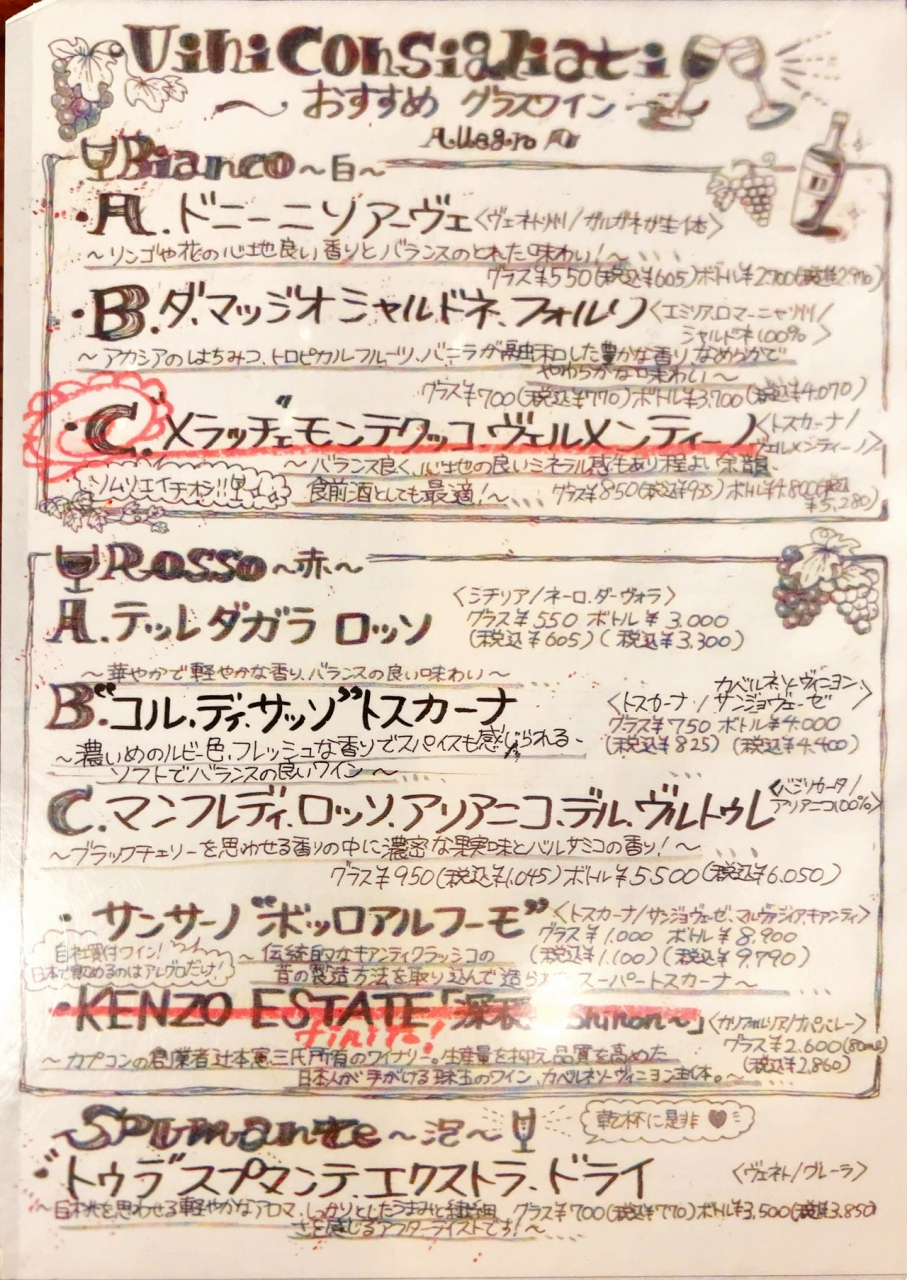 Vini Consigliati
～おすすめ グラスワイン～
Allegro
Bianco～白～
・A.ドニーニソアーヴェ〈ヴェネト州/ガルガネガ主体〉
～リンゴや花の心地良い香りとバランスのとれた味わい!～
グラス¥550(税込¥605)ボトル¥2.700(税込¥2.970)
・B.ダ.マッジオ シャルドネ.フォルリ〈エミリア.ロマーニャ州/
シャルドネ100%〉
～アカシアのはちみつ、トロピカルフルーツ、バニラが融和した豊かな香り なめらかで
やわらかな味わい～
グラス¥700(税込¥770)ボトル¥3.700(税込¥4.070)
・C.メラッチェ"モンテクッコ.ヴェルメンティーノ〈トスカーナ/
ヴェルメンティーノ〉
～バランス良く、心地の良いミネラル感もあり程よい余韻、
ソムリエイチオシ!!
食前酒としても最適!～ グラス¥850(税込¥935) ボトル¥4.800(税込
¥5,280)
Rosso～赤～
A.テッレダガラ ロッソ
〈シチリア/ネーロ.ダーヴォラ〉
グラス¥550 ボトル¥3.000
(税込¥605)(税込¥3.300)
～華やかで軽やかな香り、バランスの良い味わい～
B."コル.ディ.サッソ"トスカーナ
カベルネ.ソーヴィニヨン
〈トスカーナ/サンジョヴェーゼ〉
グラス¥750 ボトル¥4.000
(税込¥825)(税込¥4.400)
～濃いめのルビー色、フレッシュな香りでスパイスも感じられる、
ソフトでバランスの良いワイン～
C.マンフレディ.ロッソ.アリアニコ.デル.ヴルトゥレ〈バジリカータ/
アリアニコ100%〉
～ブラックチェリーを思わせる香りの中に濃密な果実味とバルサミコの香り!～
グラス¥950(税込¥1,045)ボトル¥5.500(税込¥6.050)
・サンサーノ"ボッロアルフーモ"〈トスカーナ/サンジョヴェーゼ、マルヴァジア、キャンティ〉
グラス¥1.000 ボトル¥8.900
(税込¥1.100)(税込¥9.790)
自社買付ワイン!
日本で飲めるのはアレグロだけ!
～伝統的なキアンティクラッシコの
昔の製造方法を取り込んで造られた スーパートスカーナ～
・KENZO ESTATE「深 Shinon～」〈カリフォルニア/ナパバレー〉
グラス¥2.600(80ml)
(税込¥2.860)
～カプコンの創業者 辻本憲三氏所有のワイナリー。生産量を抑え品質を高めた
日本人が手がける珠玉のワイン、カベルネソーヴィニヨン主体。～
Spumante～泡～
乾杯に是非♥
・トゥラ"スプマンテ.エクストラ.ドライ
〈ヴェネト/グレーラ〉
～白桃を思わせる軽やかなアロマ、しっかりとしたうまみと繊細
さを感じるアフターテイストです!～
グラス¥700(税込¥770)ボトル¥3,500(税込¥3.850)